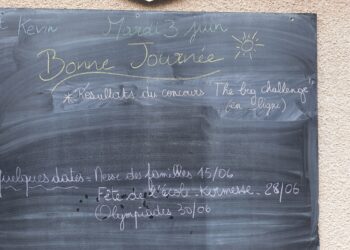 Kevin Mardi 3 juin
Bonne Journée
* Résultats du concours The big challenge"
(en ligne)
Quelques dates = Messe des familles 15/06
Fête de l'école - Kermesse - 28/06
Olympiades 30/06